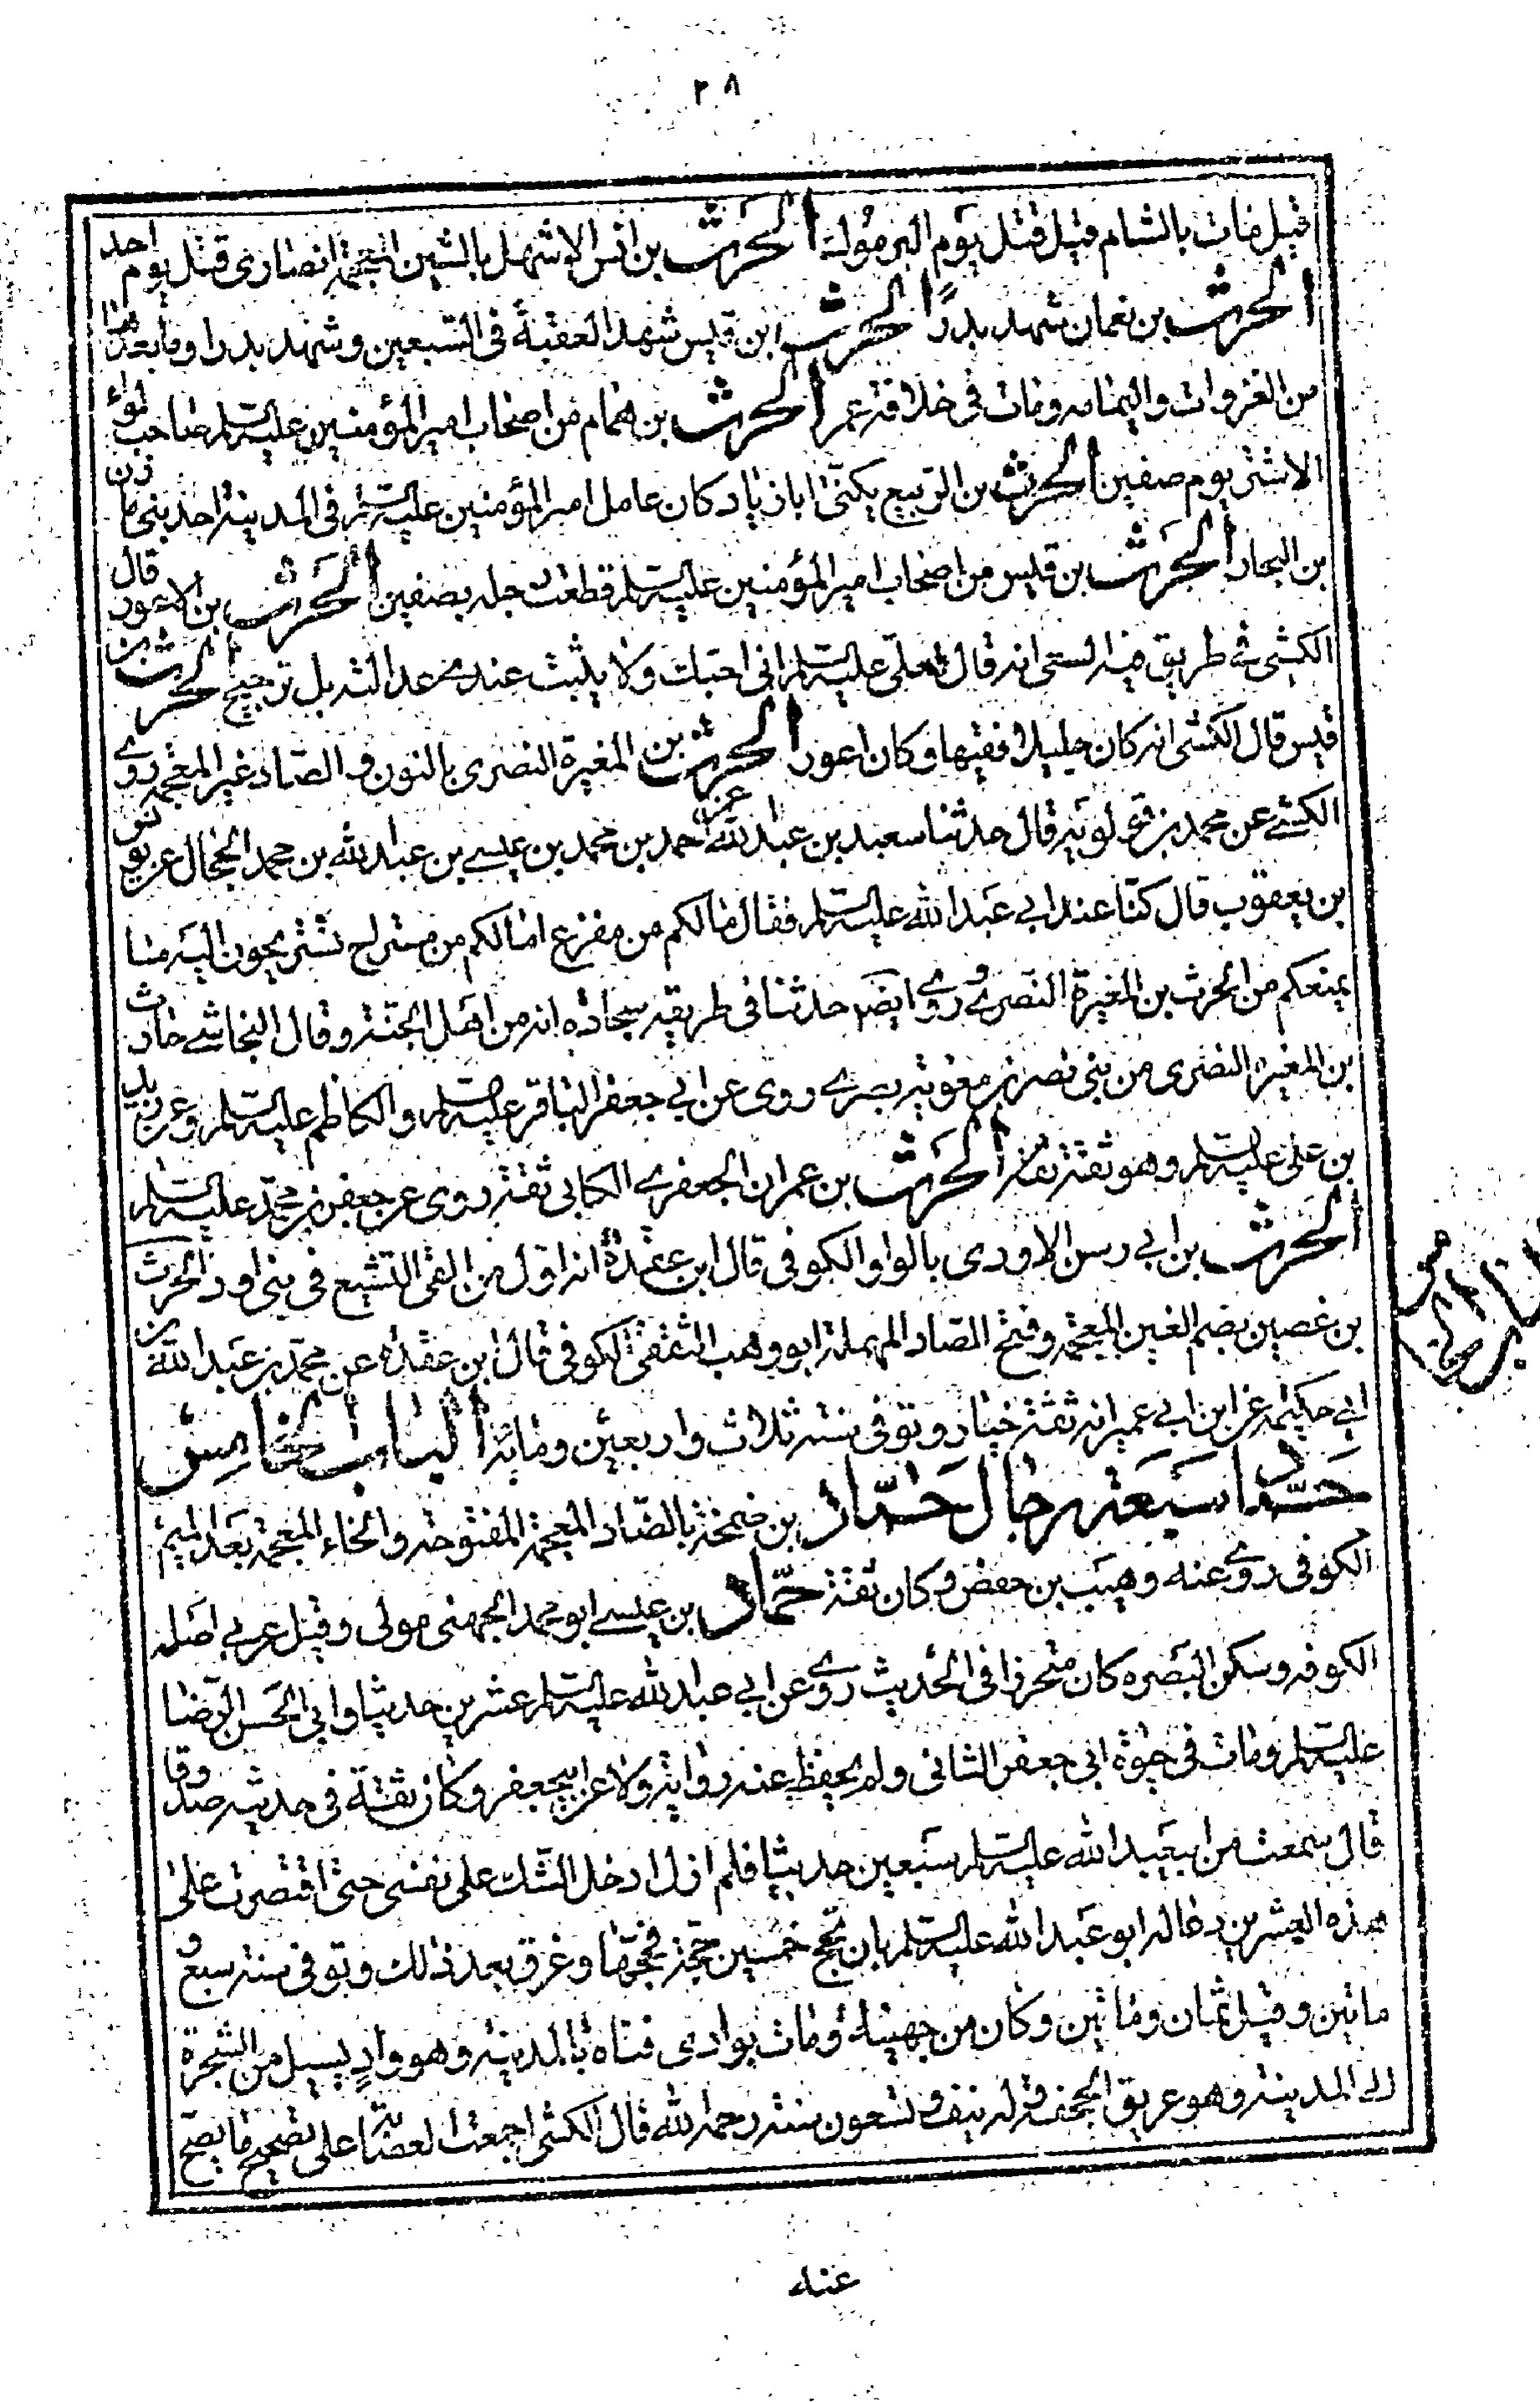 ٢٨
قيل مات بالشام قيل قتل يوم اليرموك الحرث بن انس الاشهل بالشين المعجمة انصارى قتل يوم احد
الحرث بن نعمان شهد بدرا الحرث ابن قيس شهد العقبة فى السبعين وشهد بدرا وما بعدها
من الغزوات واليمامه ومات فى خلافة عمر الحرث بن همام من اصحاب امير المؤمنين عليه السلم صاحب لواء
الاشتر يوم صفين الحرث بن الربيع يكنى ابا زياد كان عامل امير المؤمنين عليه السلم فى المدينة احد بنى مازن
بن النجار الحرث بن قيس من اصحاب امير المؤمنين عليه السلم قطعت رجله بصفين الحرث بن الاعور قال
الكشى فى طريق فيه الشعبى انه قال لعلى عليه السلم انى احبك ولا يثبت عندى بهذا عدالته بل ترجيح الحرث بن
قيس قال الكشى انه كان جليلا فقيها وكان اعور الحرث بن المغيرة النصرى بالنون والصاد غير المعجمه روى
الكشى عن محمد بن قولويه قال حدثنا سعيد بن عبدالله عن احمد بن محمد بن عيسى بن عبدالله بن محمد الحجال عن يونس
بن يعقوب قال كنا عند ابى عبدالله عليه السلم فقال ما لكم من مفزع اما لكم من مستراح تستريحون اليه ما
يمنعكم من الحرث بن المغيرة النصرى وروى ايضا حدثنا فى طريقه سجادة انه من اهل الجنة وقال النجاشى حارث
بن المغيرة النصرى من بنى نصر بن معوية بصرى روى عن ابى جعفر الباقر عليه السلم والكاظم عليه السلم وعن زيد
بن على عليه السلم وهو ثقة ثقة الحرث بن عمران الجعفرى الكلابى ثقة روى عن جعفر بن محمد عليه السلم
الحرث بن ابى رسن الاودى بالواو الكوفى قال ابن عقدة انه اول من القى التشيع فى بنى اود الحرث
بن غصين بضم الغين المعجمة وفتح الصاد المهملة ابو وهب الثقفى الكوفى قال ابن عقدة عن محمد بن عبدالله بن
ابى حكيمه عن ابن ابى عمير انه ثقة خيار وتوفى سنة ثلاث واربعين ومائة الباب الخامس
حماد سبعة رجال حماد بن ضمخة بالضاد المعجمة المفتوحة والخاء المعجمة بعد الميم
الكوفى روى عنه وهيب بن حفص وكان ثقة حماد بن عيسى ابو محمد الجهنى مولى وقيل عربى اصله
الكوفه وسكن البصره كان متحرزا فى الحديث روى عن ابى عبدالله عليه السلم عشرين حديثا وابى الحسن الرضا
عليه السلم ومات فى حيوة ابى جعفر الثانى ولم يحفظ عنه رواية ولا عن ابيجعفر وكان ثقة فى حديثه صدوقا
قال سمعت من ابيعبدالله عليه السلم سبعين حديثا فلم ازل ادخل الشك على نفسى حتى اقتصرت على
هذه العشرين دعا له ابو عبدالله عليه السلم بان يحج خمسين حجة فحجها وغرق بعد ذلك وتوفى سنة سبع و
ماتين وقيل ثمان وماتين وكان من جهينة ومات بوادى قناة بالمدينة وهو واد يسيل من الشجرة
الى المدينة وهو غريق الجحفة وله نيف وتسعون سنة رحمه الله قال الكشى اجمعت العصابة على تصحيح ما يصح
عنه